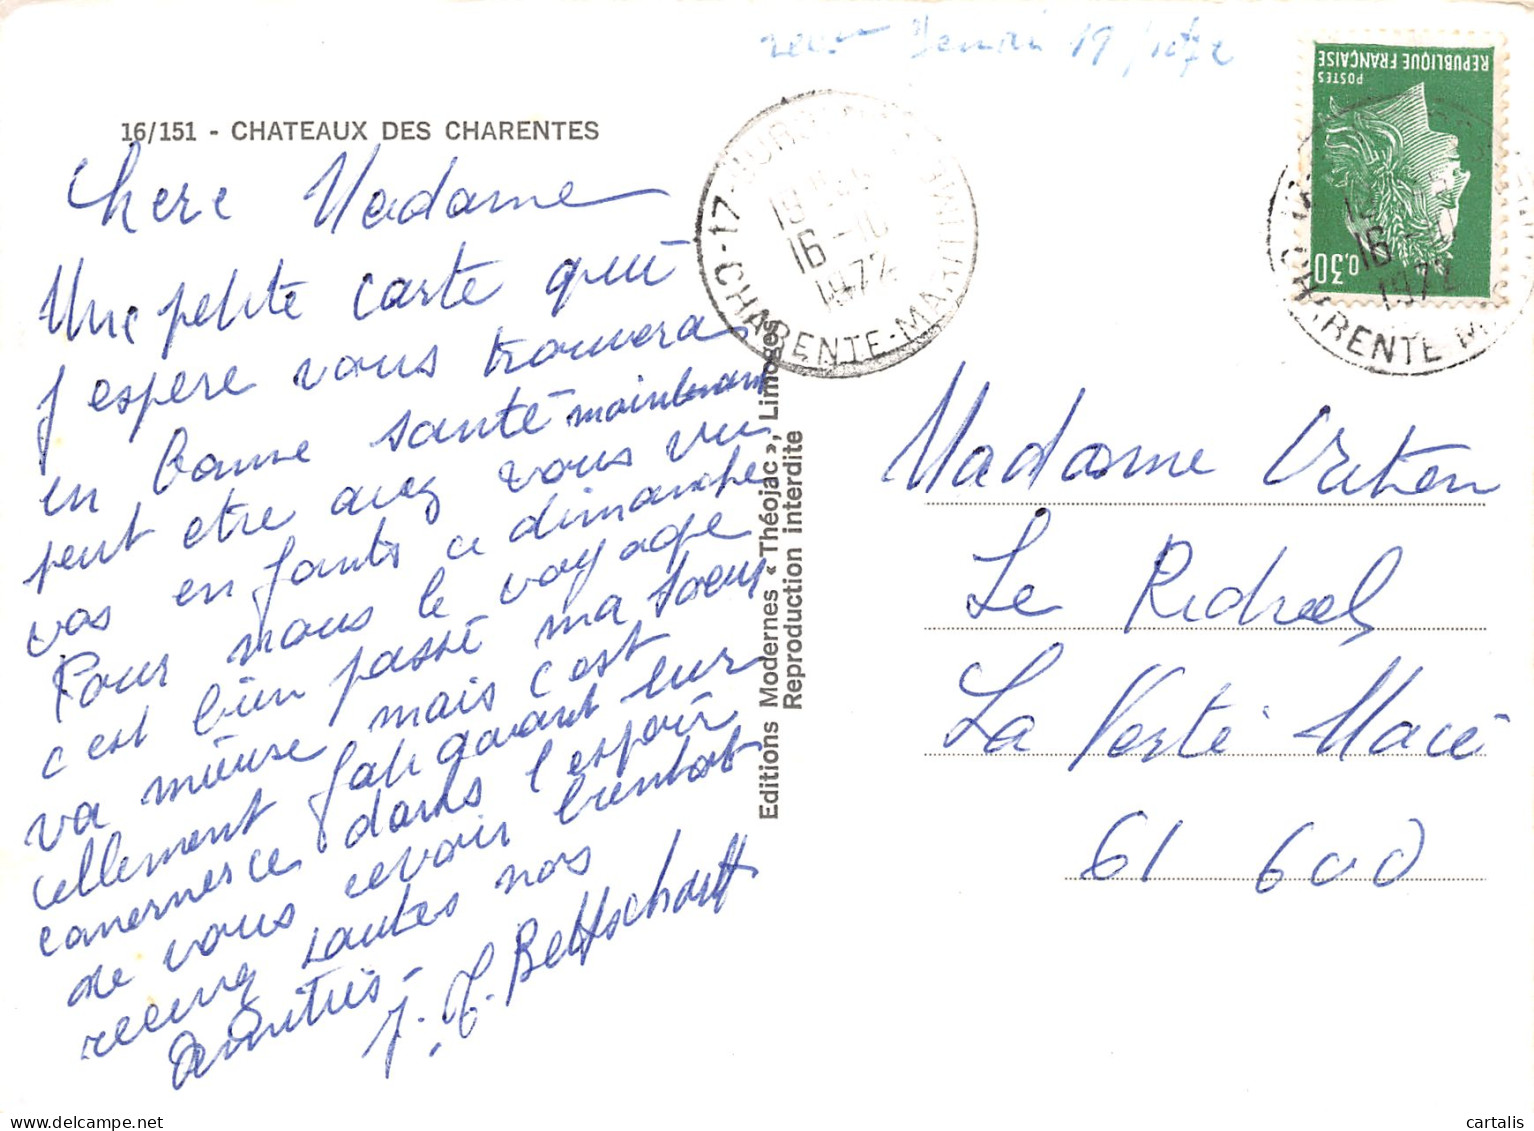 19/10/72
16/151 - CHATEAUX DES CHARENTES
REPUBLIQUE FRANÇAISE
POSTES
0,30
16 -10
1972
17- CHARENTE-MARITIME
16
1972
CHARENTE M
Chere Madame
Une petite carte qui
j'espere vous trouvera
en bonne santé maintenant
peut etre avez vous vu
vos enfants ce dimanche
Pour nous le voyage
c'est bien passé ma soeur
va mieuse mais c'est
tellement fatiguant sur
dans l'espoir
de vous revoir bientot
recevez toutes nos
Amitiés -
J. J. Bettschart
Editions Modernes « Théojac », Limoges
Reproduction interdite
Madame
Le
La Ferté Macé
61 600
cartalis